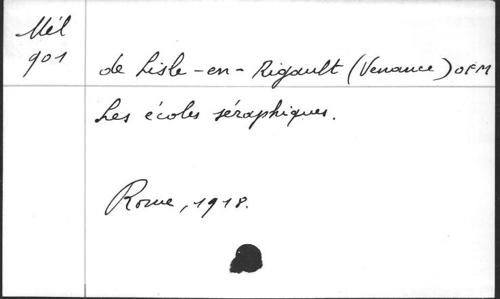 Mél
901
de Lisle-en-Rigault (Venance) OFM
Les écoles séraphiques.
Rome, 1918.